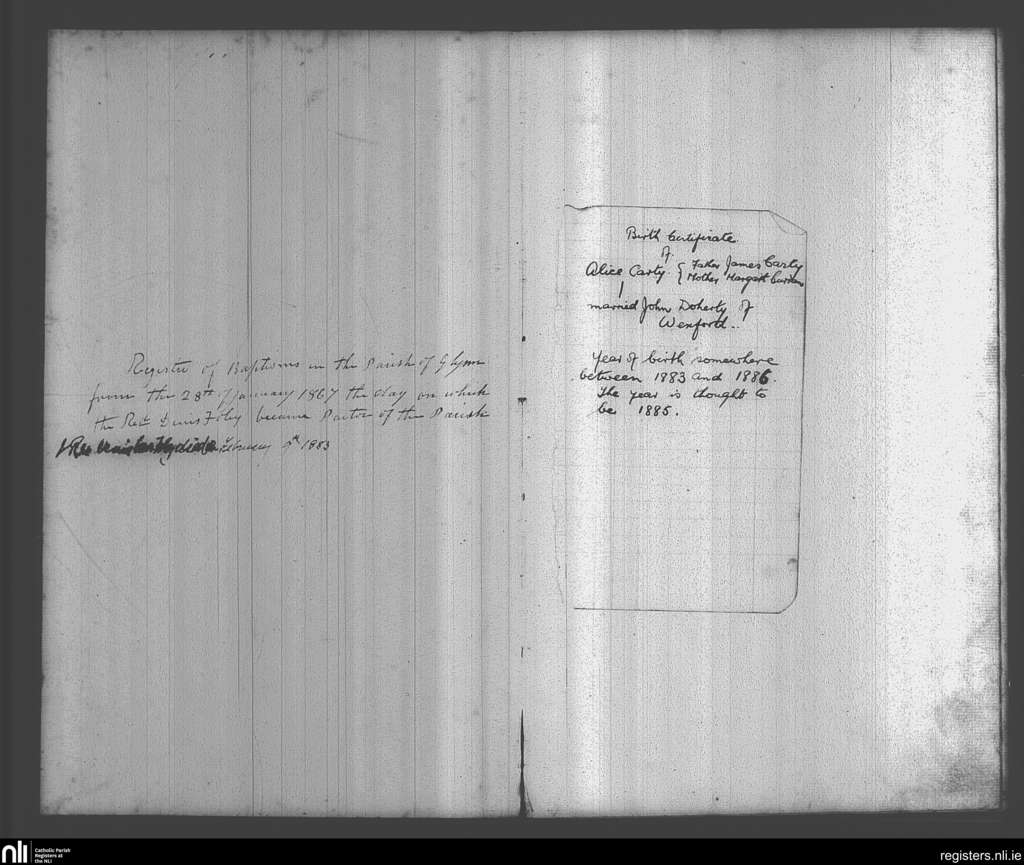 Register of Baptisms in the Parish of Glynn
from the 28th of January 1867 the day on which
the Revd. Denis Foley became Pastor of the Parish
Rev died February 9th 1883
Birth Certificate
of
Alice Carty. { Father James Carty
Mother Margaret Curran
married John Doherty of
Wexford..
Year of birth somewhere
between 1883 and 1886.
The year is thought to
be 1885.
nli Catholic Parish
Registers at
the NLI
registers.nli.ie